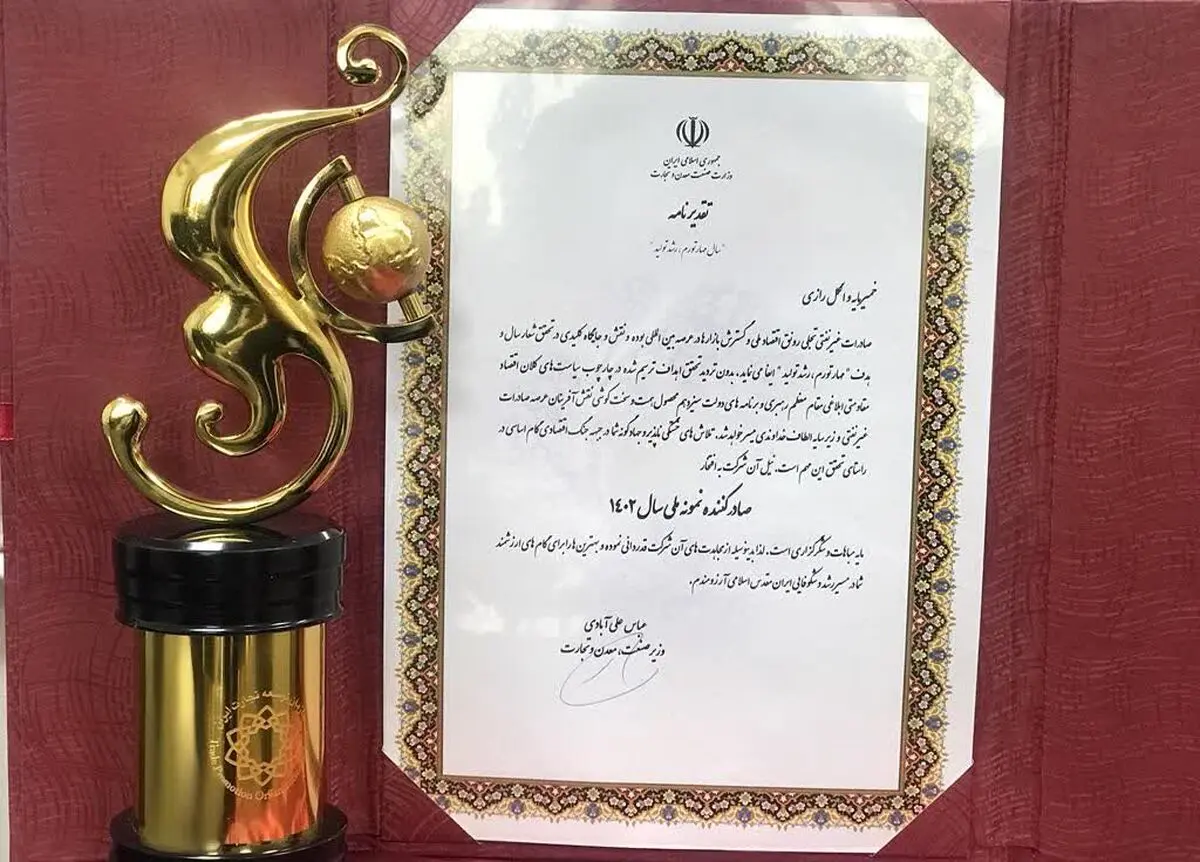 جمهوری اسلامی ایران
وزارت صنعت معدن و تجارت
تقدیرنامه
"سال مهار تورم، رشد تولید"
خمیرمایه و الکل رازی
صادرات غیرنفتی تجلی رونق اقتصاد ملی و گسترش بازارها در عرصه بین المللی بوده و نقش و جایگاه کلیدی در تحقق شعار سال و
هدف "مهار تورم، رشد تولید" ایفا می نماید، بدون تردید تحقق اهداف ترسیم شده در چارچوب سیاست‌های کلان اقتصاد
مقاومتی ابلاغی مقام معظم رهبری و برنامه های دولت سیزدهم محصول همت و سخت کوشی نقش آفرینان عرصه صادرات
غیرنفتی و زیر سایه الطاف خداوندی میسر خواهد شد. تلاش های خستگی ناپذیر و جهادگونه شما در جبهه جنگ اقتصادی گام اساسی در
راستای تحقق این مهم است. نیل آن شرکت به افتخار
صادرکننده نمونه ملی سال ۱۴۰۲
مایه مباهات و شکرگزاری است. لذا بدینوسیله از مجاهدت های آن شرکت قدردانی نموده و بهترین ها را برای گام های ارزشمند
شما در مسیر رشد و شکوفایی ایران مقدس اسلامی آرزومندم.
عباس علی آبادی
وزیر صنعت، معدن و تجارت
توسعه تجارت ایران
Trade Promotion